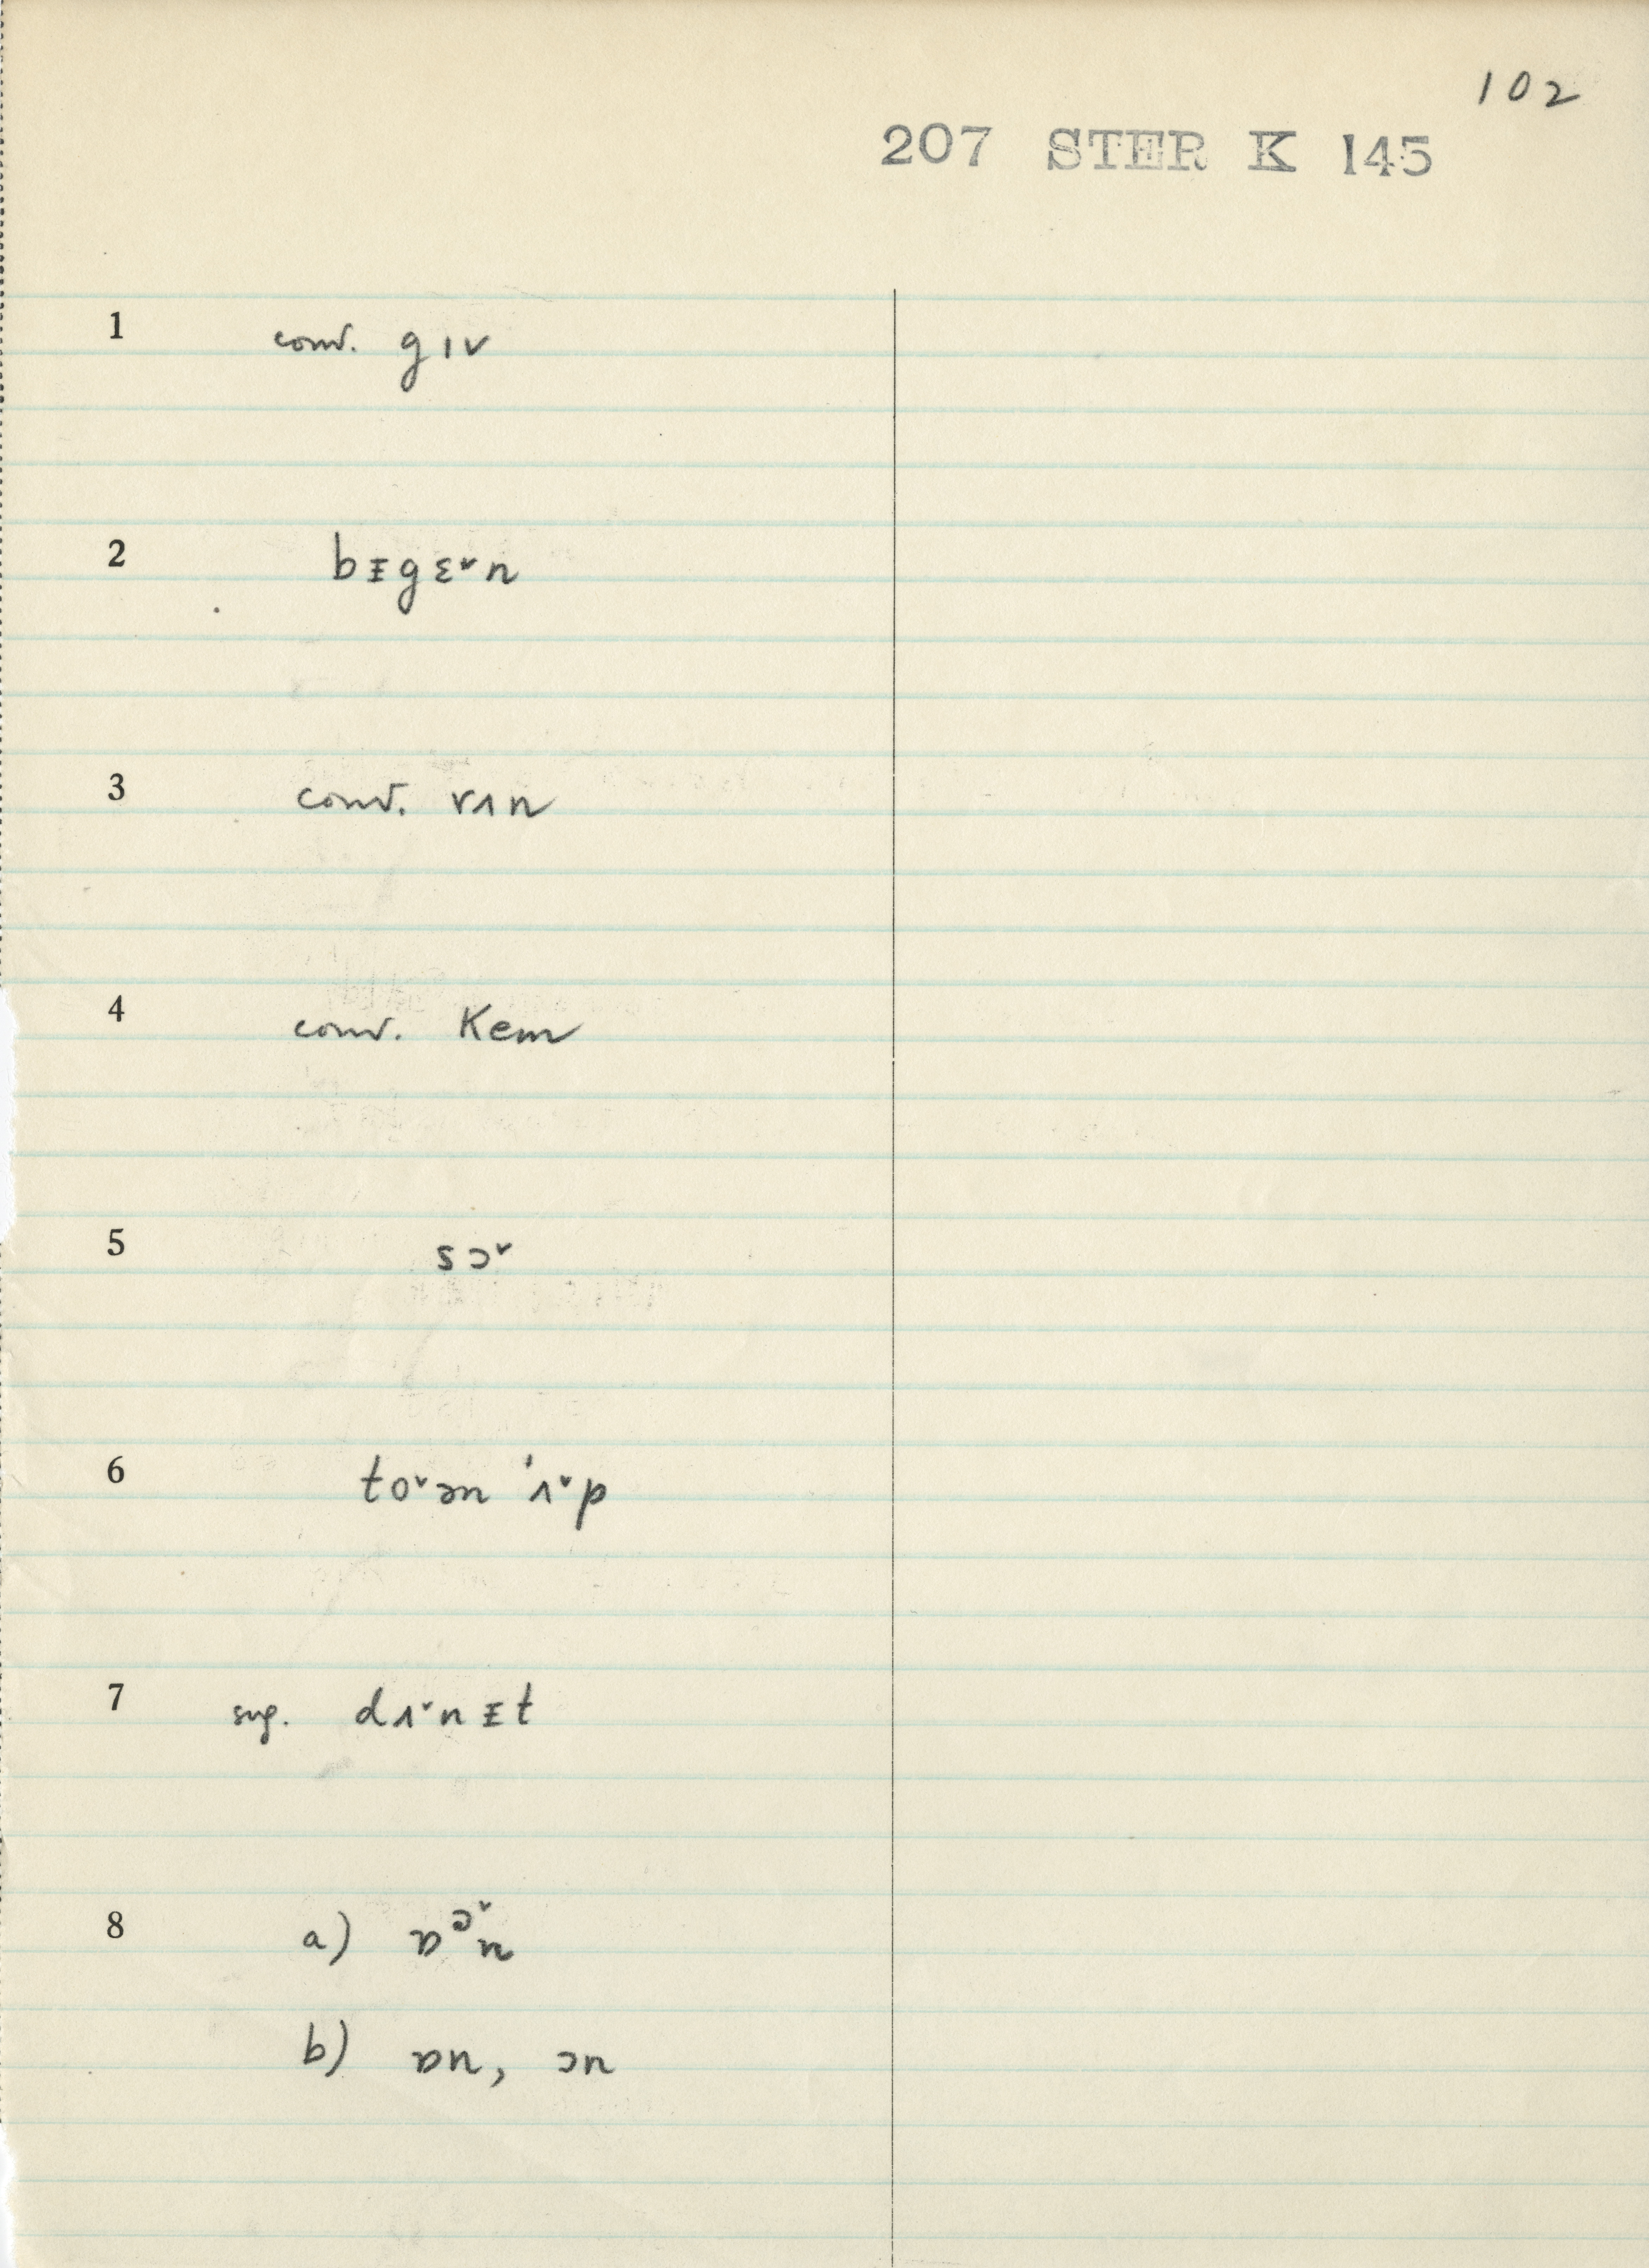 102
207 STER K 145
1 conv. gɪv
2 bᵻgɛˇn
3 conv. rʌn
4 conv. Kem
5 sɔˇ
6 toˇən 'ʌˇp
7 sug. dʌˇnᵻt
8 a) ɒᵓˇn
b) ɒn, ɔn